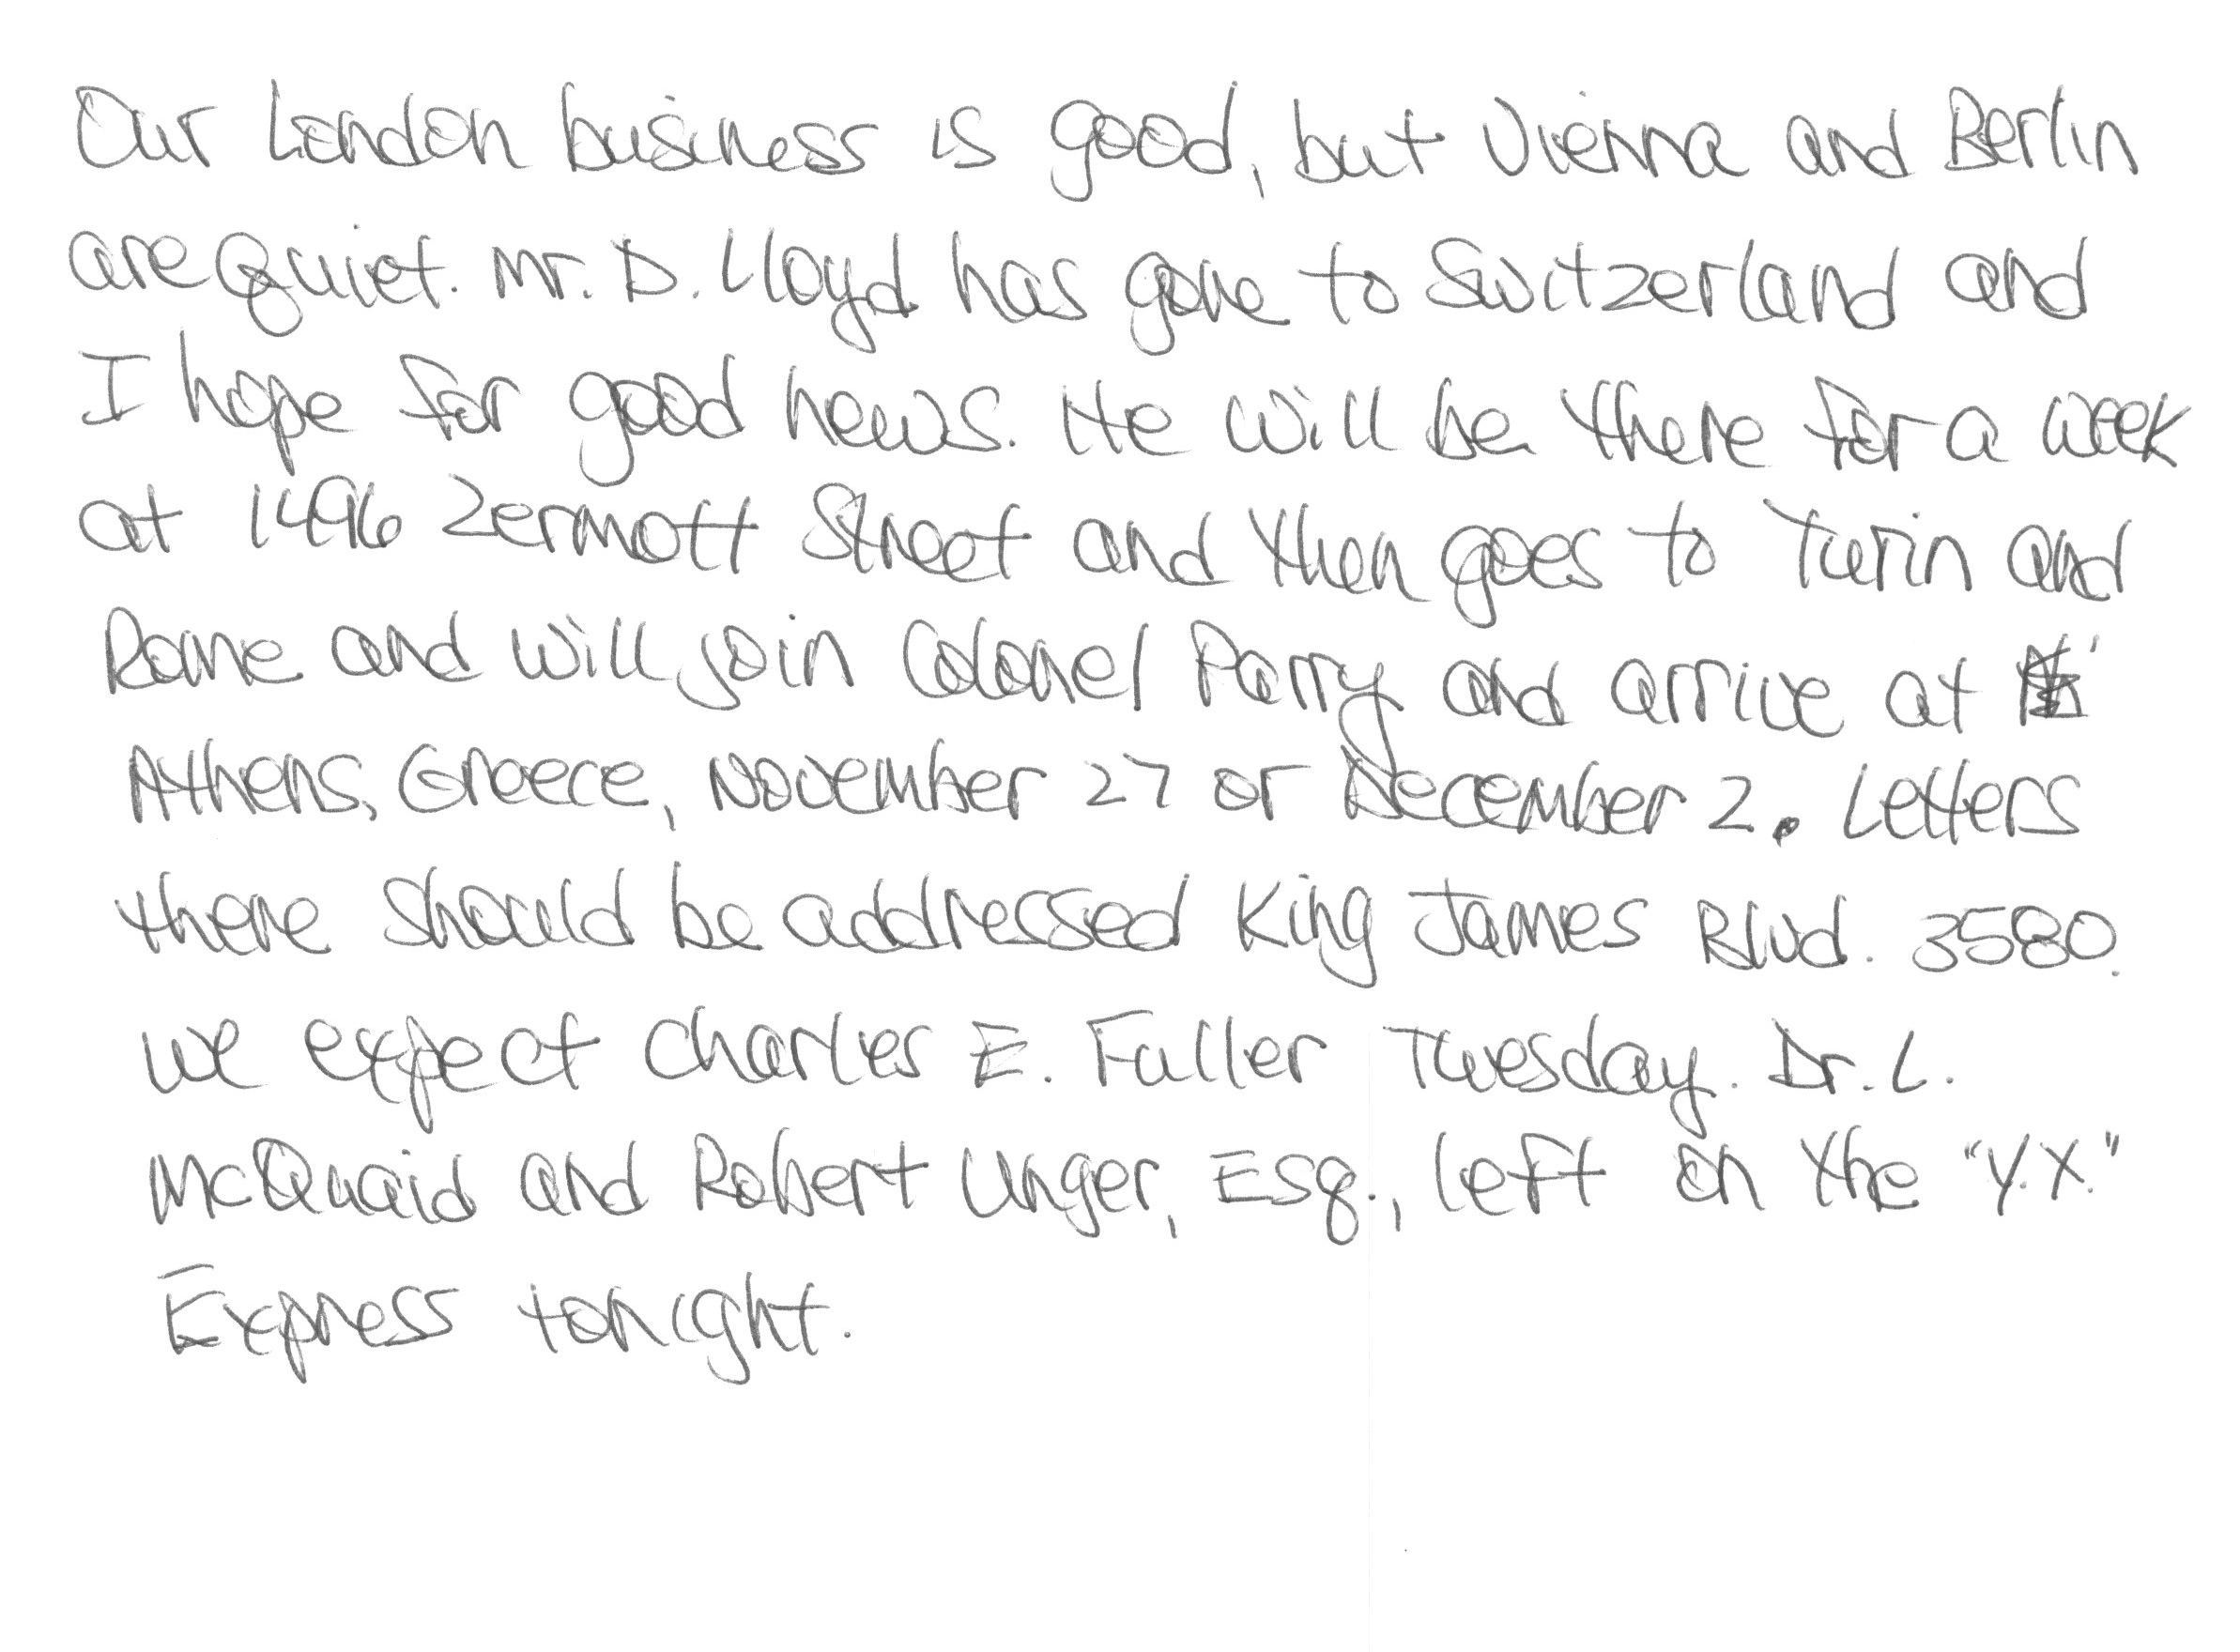 Our London business is good, but Vienna and Berlin
are quiet. Mr. D. Lloyd has gone to Switzerland and
I hope for good news. He will be there for a week
at 1496 Zermott Street and then goes to Turin and
Rome and will join Colonel Parry and arrive at
Athens, Greece, November 27 or December 2. Letters
there should be addressed King James Blvd. 3580.
We expect Charles E. Fuller Tuesday. Dr. L.
McQuaid and Robert Unger, Esq., left on the "Y.X."
Express tonight.